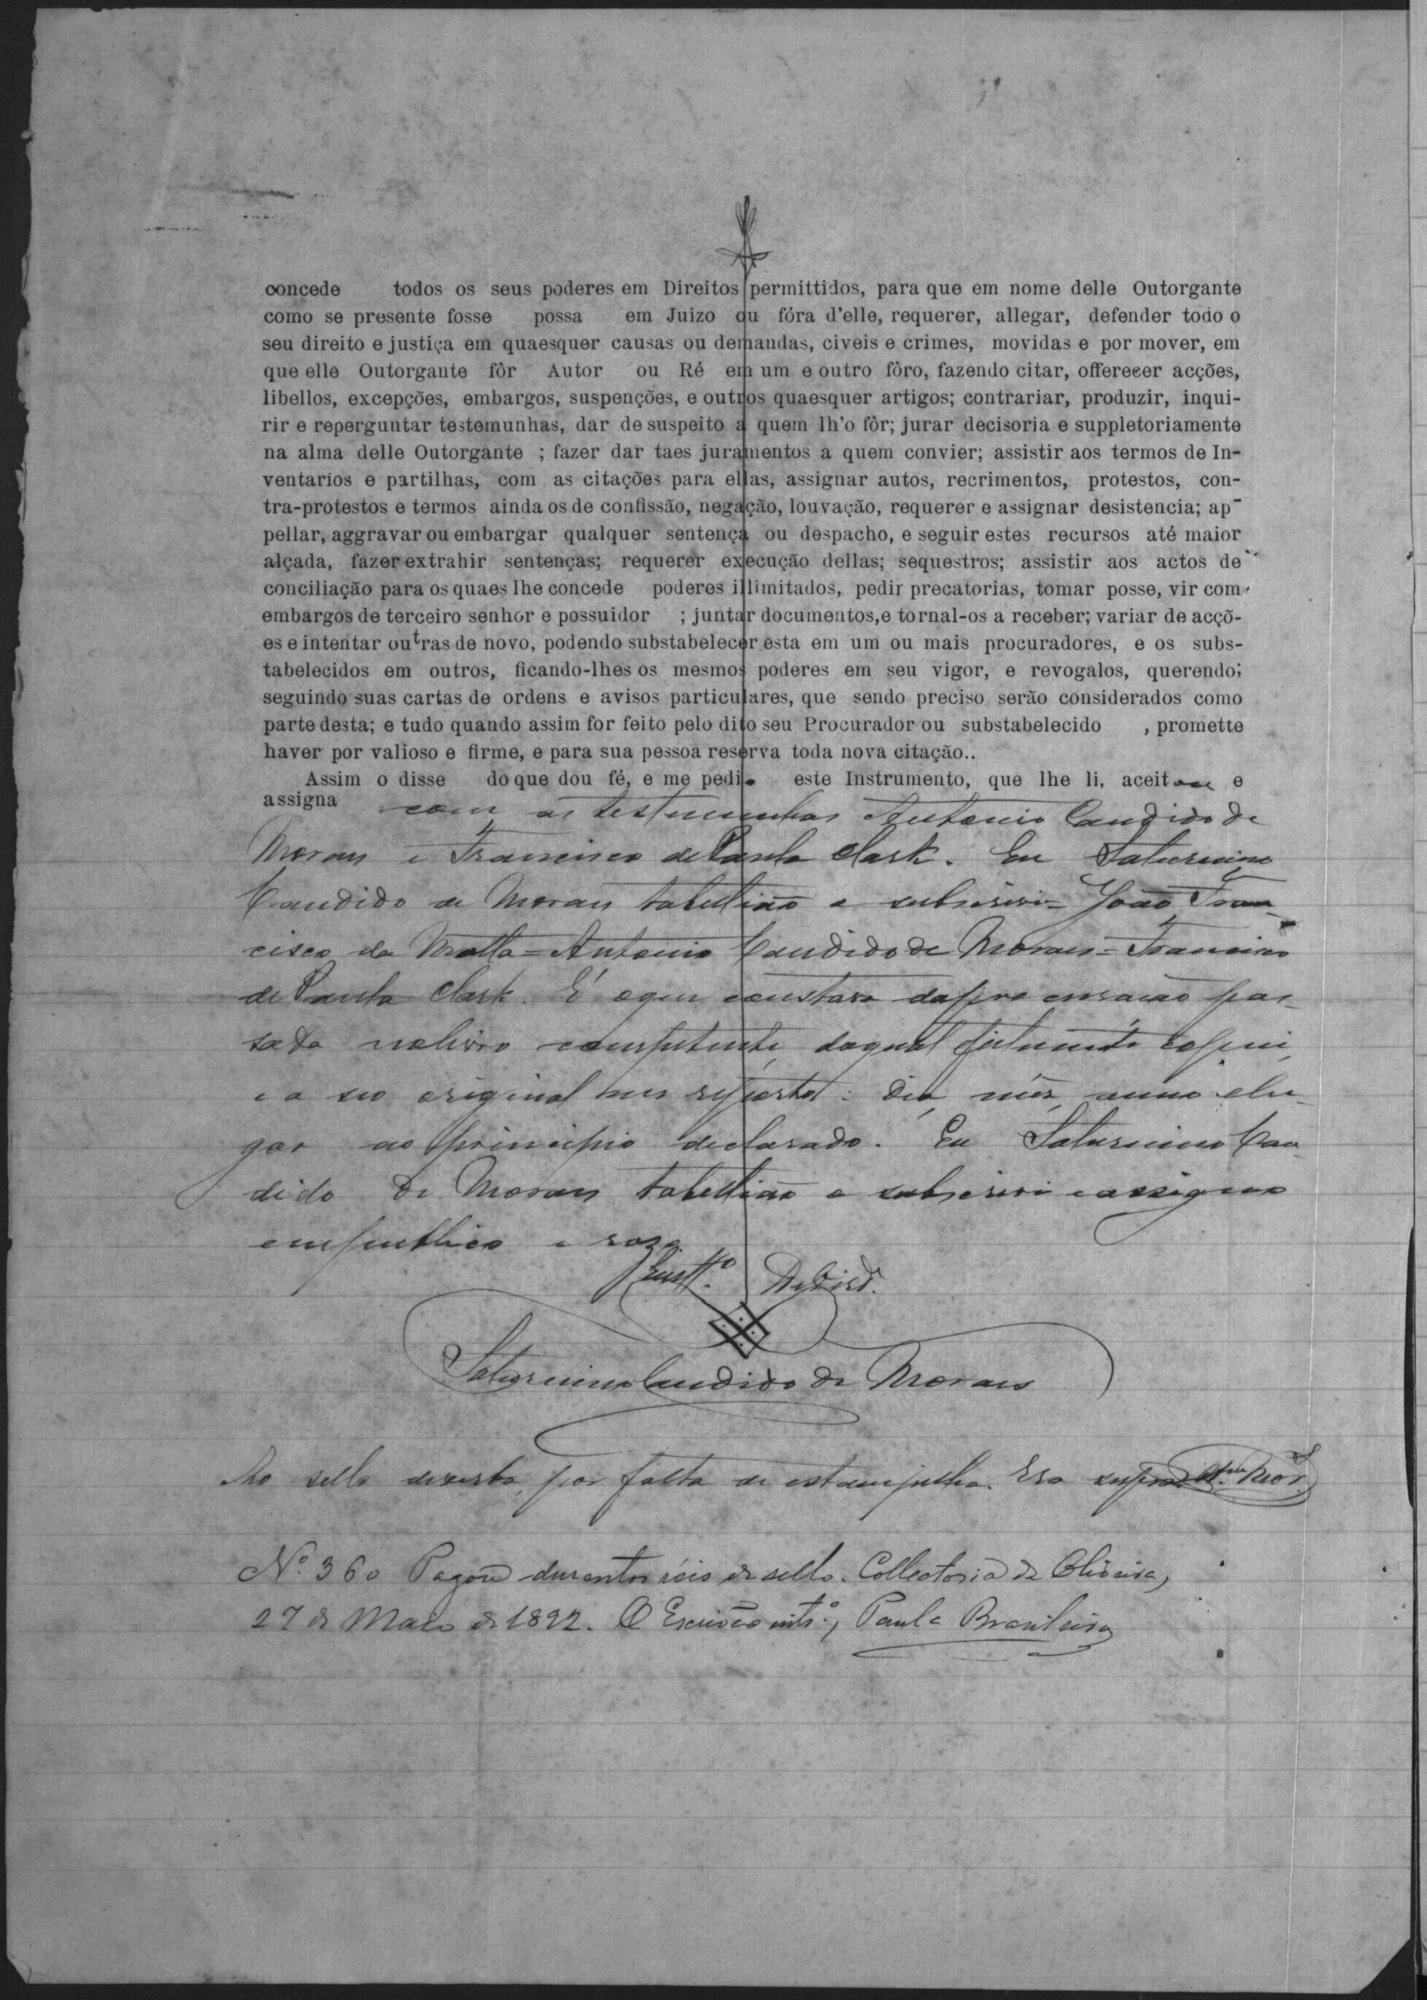 concede todos os seus poderes em Direitos permittidos, para que em nome delle Outorgante
como se presente fosse possa em Juizo ou fóra d'elle, requerer, allegar, defender todo o
seu direito e justiça em quaesquer causas ou demandas, civeis e crimes, movidas e por mover, em
que elle Outorgante fôr Autor ou Ré em um e outro fôro, fazendo citar, offerecer acções,
libellos, excepções, embargos, suspenções, e outros quaesquer artigos; contrariar, produzir, inqui-
rir e reperguntar testemunhas, dar de suspeito a quem lh'o fôr; jurar decisoria e suppletoriamente
na alma delle Outorgante ; fazer dar taes juramentos a quem convier; assistir aos termos de In-
ventarios e partilhas, com as citações para ellas, assignar autos, recrimentos, protestos, con-
tra-protestos e termos ainda os de confissão, negação, louvação, requerer e assignar desistencia; ap-
pellar, aggravar ou embargar qualquer sentença ou despacho, e seguir estes recursos até maior
alçada, fazer extrahir sentenças; requerer execução dellas; sequestros; assistir aos actos de
conciliação para os quaes lhe concede poderes illimitados, pedir precatorias, tomar posse, vir com
embargos de terceiro senhor e possuidor ; juntar documentos,e tornal-os a receber; variar de acçõ-
es e intentar outras de novo, podendo substabelecer esta em um ou mais procuradores, e os subs-
tabelecidos em outros, ficando-lhes os mesmos poderes em seu vigor, e revogalos, querendo;
seguindo suas cartas de ordens e avisos particulares, que sendo preciso serão considerados como
parte desta; e tudo quando assim for feito pelo dito seu Procurador ou substabelecido , promette
haver por valioso e firme, e para sua pessoa reserva toda nova citação..
Assim o disse do que dou fé, e me pedio este Instrumento, que lhe li, aceitou e
assigna com as testemunhas Antonio Candido de
Moraes e Francisco de Paula Clark. Eu Saturnino
Candido de Moraes tabellião o subscrevi= João Fran-
cisco da Motta= Antonio Candido de Moraes= Francisco
de Paula Clark. É o que constava da procuração pas-
sada no livro competente, da qual fielmente copiei
e a seo original me reporto: dia, mês, anno e lu-
gar ao principio declarado. Eu Saturnino Can-
dido de Moraes tabellião o subscrevi e assigno
em publico e raso
Saturnino Candido de Moraes
Ao sello diverto por falta de estampilha. Era supra
Nº 360 Pagou duzentos réis de sello. Collectoria de Oliveira,
27 de Maio de 1892. O Escrivão intº, Paula Brasileiro